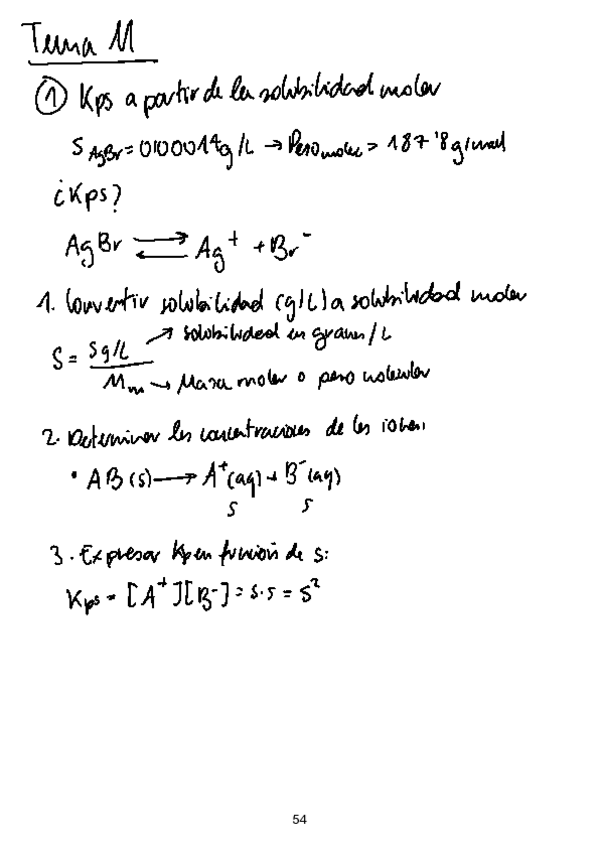 Tema 11
① Kps a partir de la solubilidad molar
S AgBr = 0'00014g/L → Peso molec = 187'8 g/mol
¿Kps?
AgBr ⇌ Ag⁺ + Br⁻
1. Convertir solubilidad (g/L) a solubilidad molar
S = Sg/L / Mm → solubilidad en gramos/L
→ Masa molar o peso molecular
2. Determinar las concentraciones de los iones.
• AB (s) → A⁺(aq) + B⁻(aq)
S S
3. Expresar Kp en función de s:
Kps = [A⁺][B⁻] = s·s = s²
54